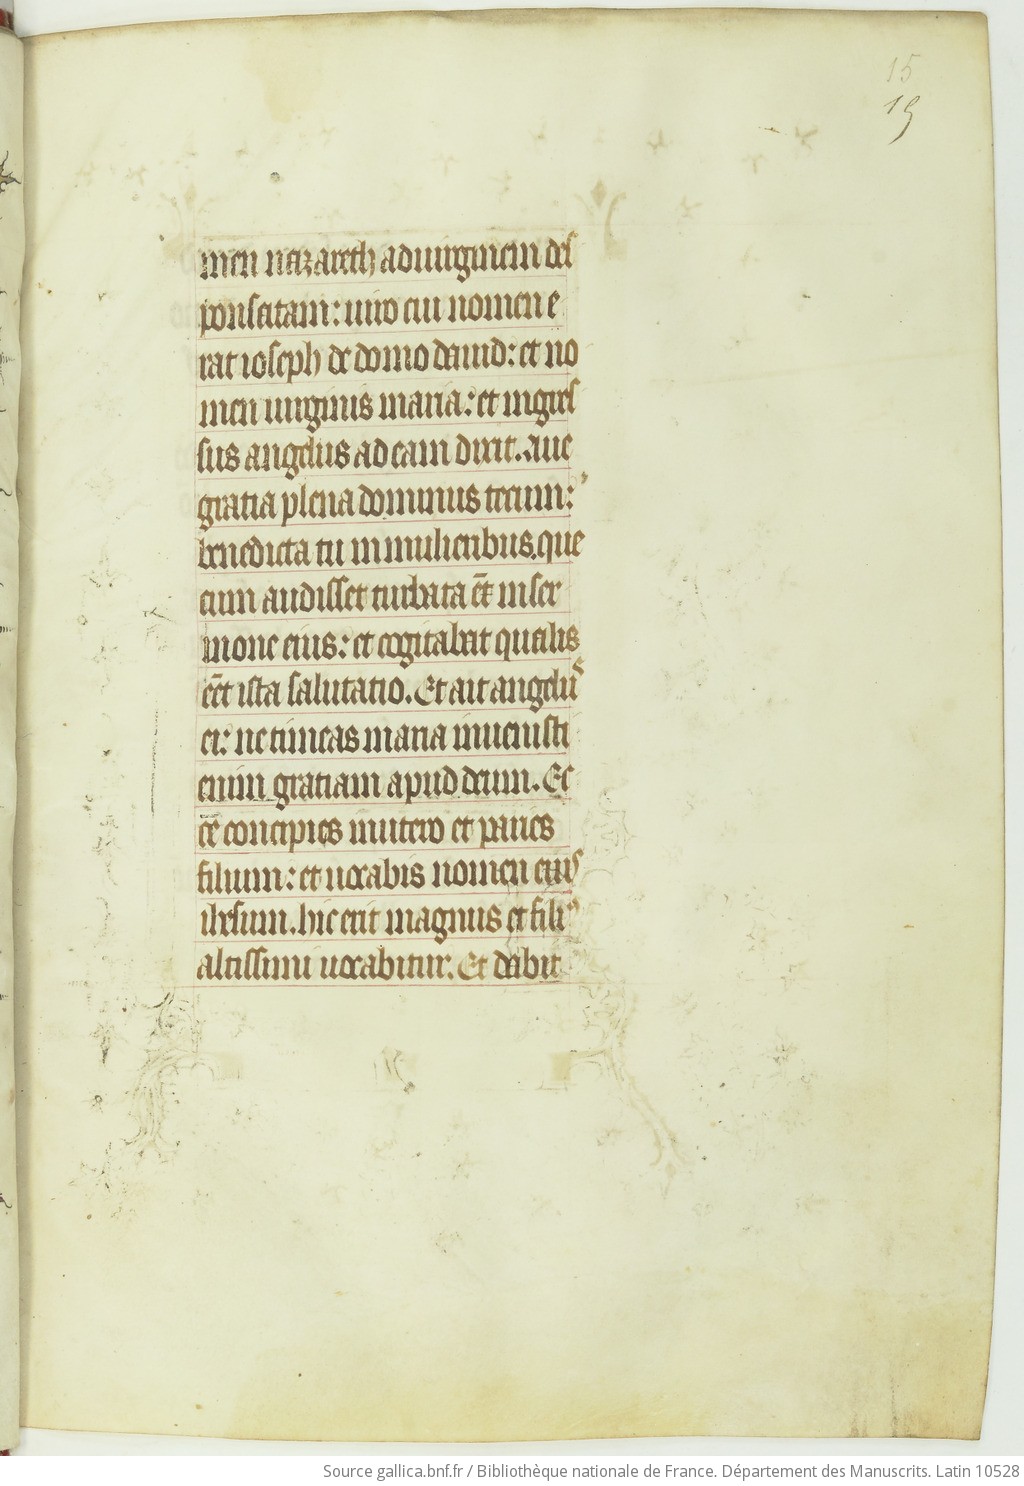 15
15
men nazareth ad uirginem des
ponsatam: uiro cui nomen e
rat ioseph de domo dauid: et no
men uirginis maria: et ingres
sus angelus ad eam dixit. aue
gratia plena dominus tecum:
benedicta tu in mulieribus. que
cum audisset turbata ē in ser
mone eius: et cogitabat qualis
eēt ista salutatio. Et ait angelu s
ei: ne timeas maria inuenisti
enim gratiam apud deum. Ec
ce concipies in utero et paries
filium: et uocabis nomen eius
ihesum. hic erit magnus et fili⁹
altissimi uocabitur. Et dabit
Source gallica.bnf.fr / Bibliothèque nationale de France. Département des Manuscrits. Latin 10528